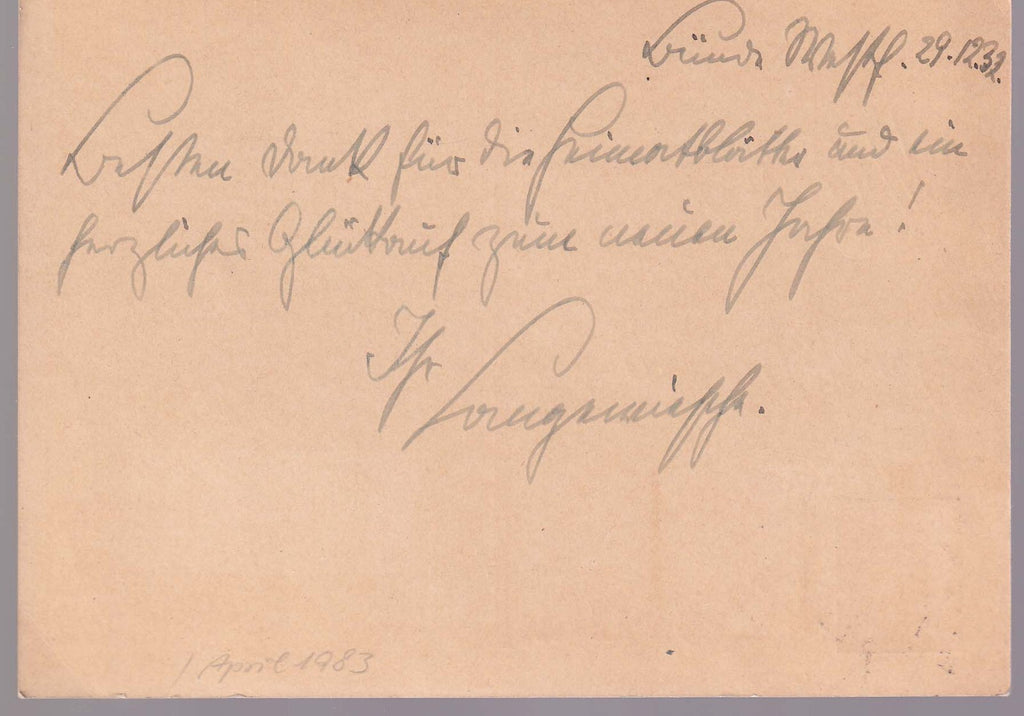 Bünde Westf. 29.12.32.
Besten Dank für die Heimatblätter und ein
herzliches Glückauf zum neuen Jahre!
Ihr
Langewiesche.
1 April 1983